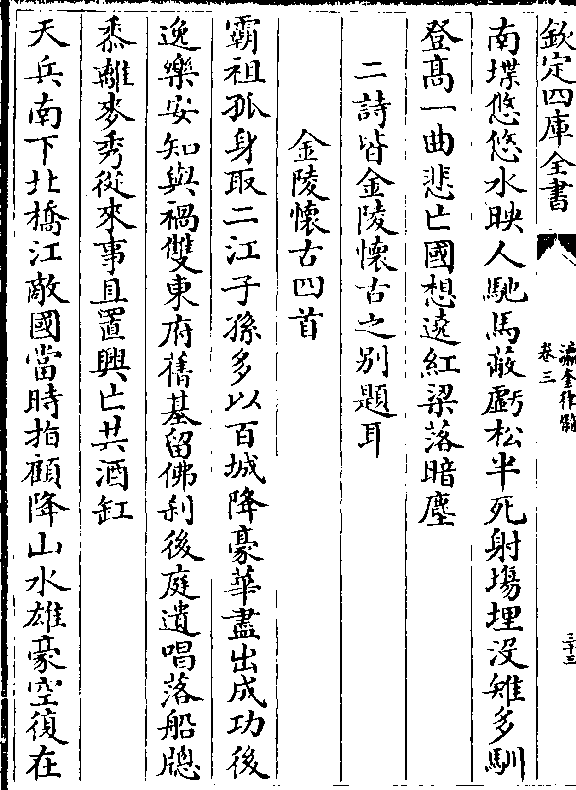 欽定四庫全書
瀛奎律髓
卷三
三十三
南堞悠悠水映人馳馬蔽虧松半死射塲埋没雉多馴
登高一曲悲亡國想遶紅梁落暗塵
二詩皆金陵懷古之别題耳
金陵懷古四首
霸祖孤身取二江子孫多以百城降豪華盡出成功後
逸樂安知與禍雙東府舊基留佛刹後庭遺唱落船牕
黍離麥秀從來事且置興亡共酒缸
天兵南下北橋江敵國當時指顧降山水雄豪空復在